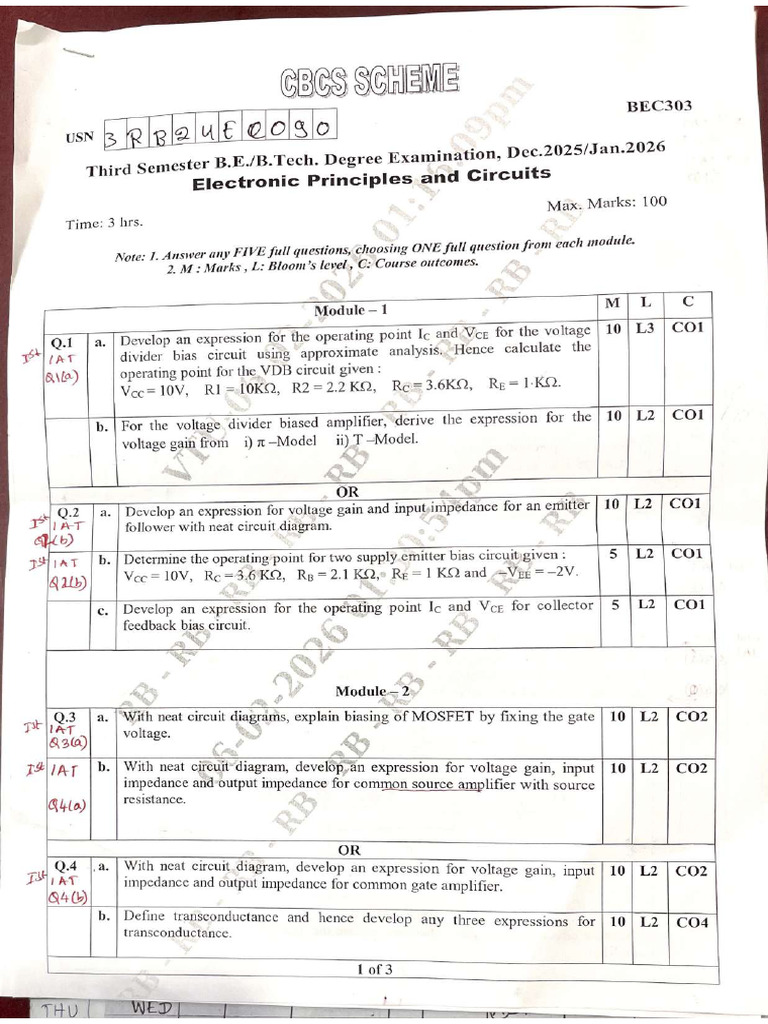 CBCS SCHEME
BEC303
USN 3RB24EC090
Third Semester B.E./B.Tech. Degree Examination, Dec.2025/Jan.2026
Electronic Principles and Circuits
Time: 3 hrs. Max. Marks: 100
Note: 1. Answer any FIVE full questions, choosing ONE full question from each module.
2. M : Marks , L: Bloom's level , C: Course outcomes.
Module – 1 M L C
Q.1 a. Develop an expression for the operating point IC and VCE for the voltage 10 L3 CO1
Ist IAT divider bias circuit using approximate analysis. Hence calculate the
Q1(a) operating point for the VDB circuit given :
VCC = 10V, R1 = 10KΩ, R2 = 2.2 KΩ, RC = 3.6KΩ, RE = 1·KΩ.
b. For the voltage divider biased amplifier, derive the expression for the 10 L2 CO1
voltage gain from i) π –Model ii) T –Model.
OR
Q.2 a. Develop an expression for voltage gain and input impedance for an emitter 10 L2 CO1
Ist IAT follower with neat circuit diagram.
(b)
Ist IAT b. Determine the operating point for two supply emitter bias circuit given : 5 L2 CO1
Q2(b) VCC = 10V, RC = 3.6 KΩ, RB = 2.1 KΩ, RE = 1 KΩ and –VEE = –2V.
c. Develop an expression for the operating point IC and VCE for collector 5 L2 CO1
feedback bias circuit.
Module – 2
Q.3 a. With neat circuit diagrams, explain biasing of MOSFET by fixing the gate 10 L2 CO2
Ist IAT voltage.
Q3(a)
Ist IAT b. With neat circuit diagram, develop an expression for voltage gain, input 10 L2 CO2
impedance and output impedance for common source amplifier with source
Q4(a) resistance.
OR
Q.4 a. With neat circuit diagram, develop an expression for voltage gain, input 10 L2 CO2
Ist IAT impedance and output impedance for common gate amplifier.
Q4(b)
b. Define transconductance and hence develop any three expressions for 10 L2 CO4
transconductance.
1 of 3
THU WED